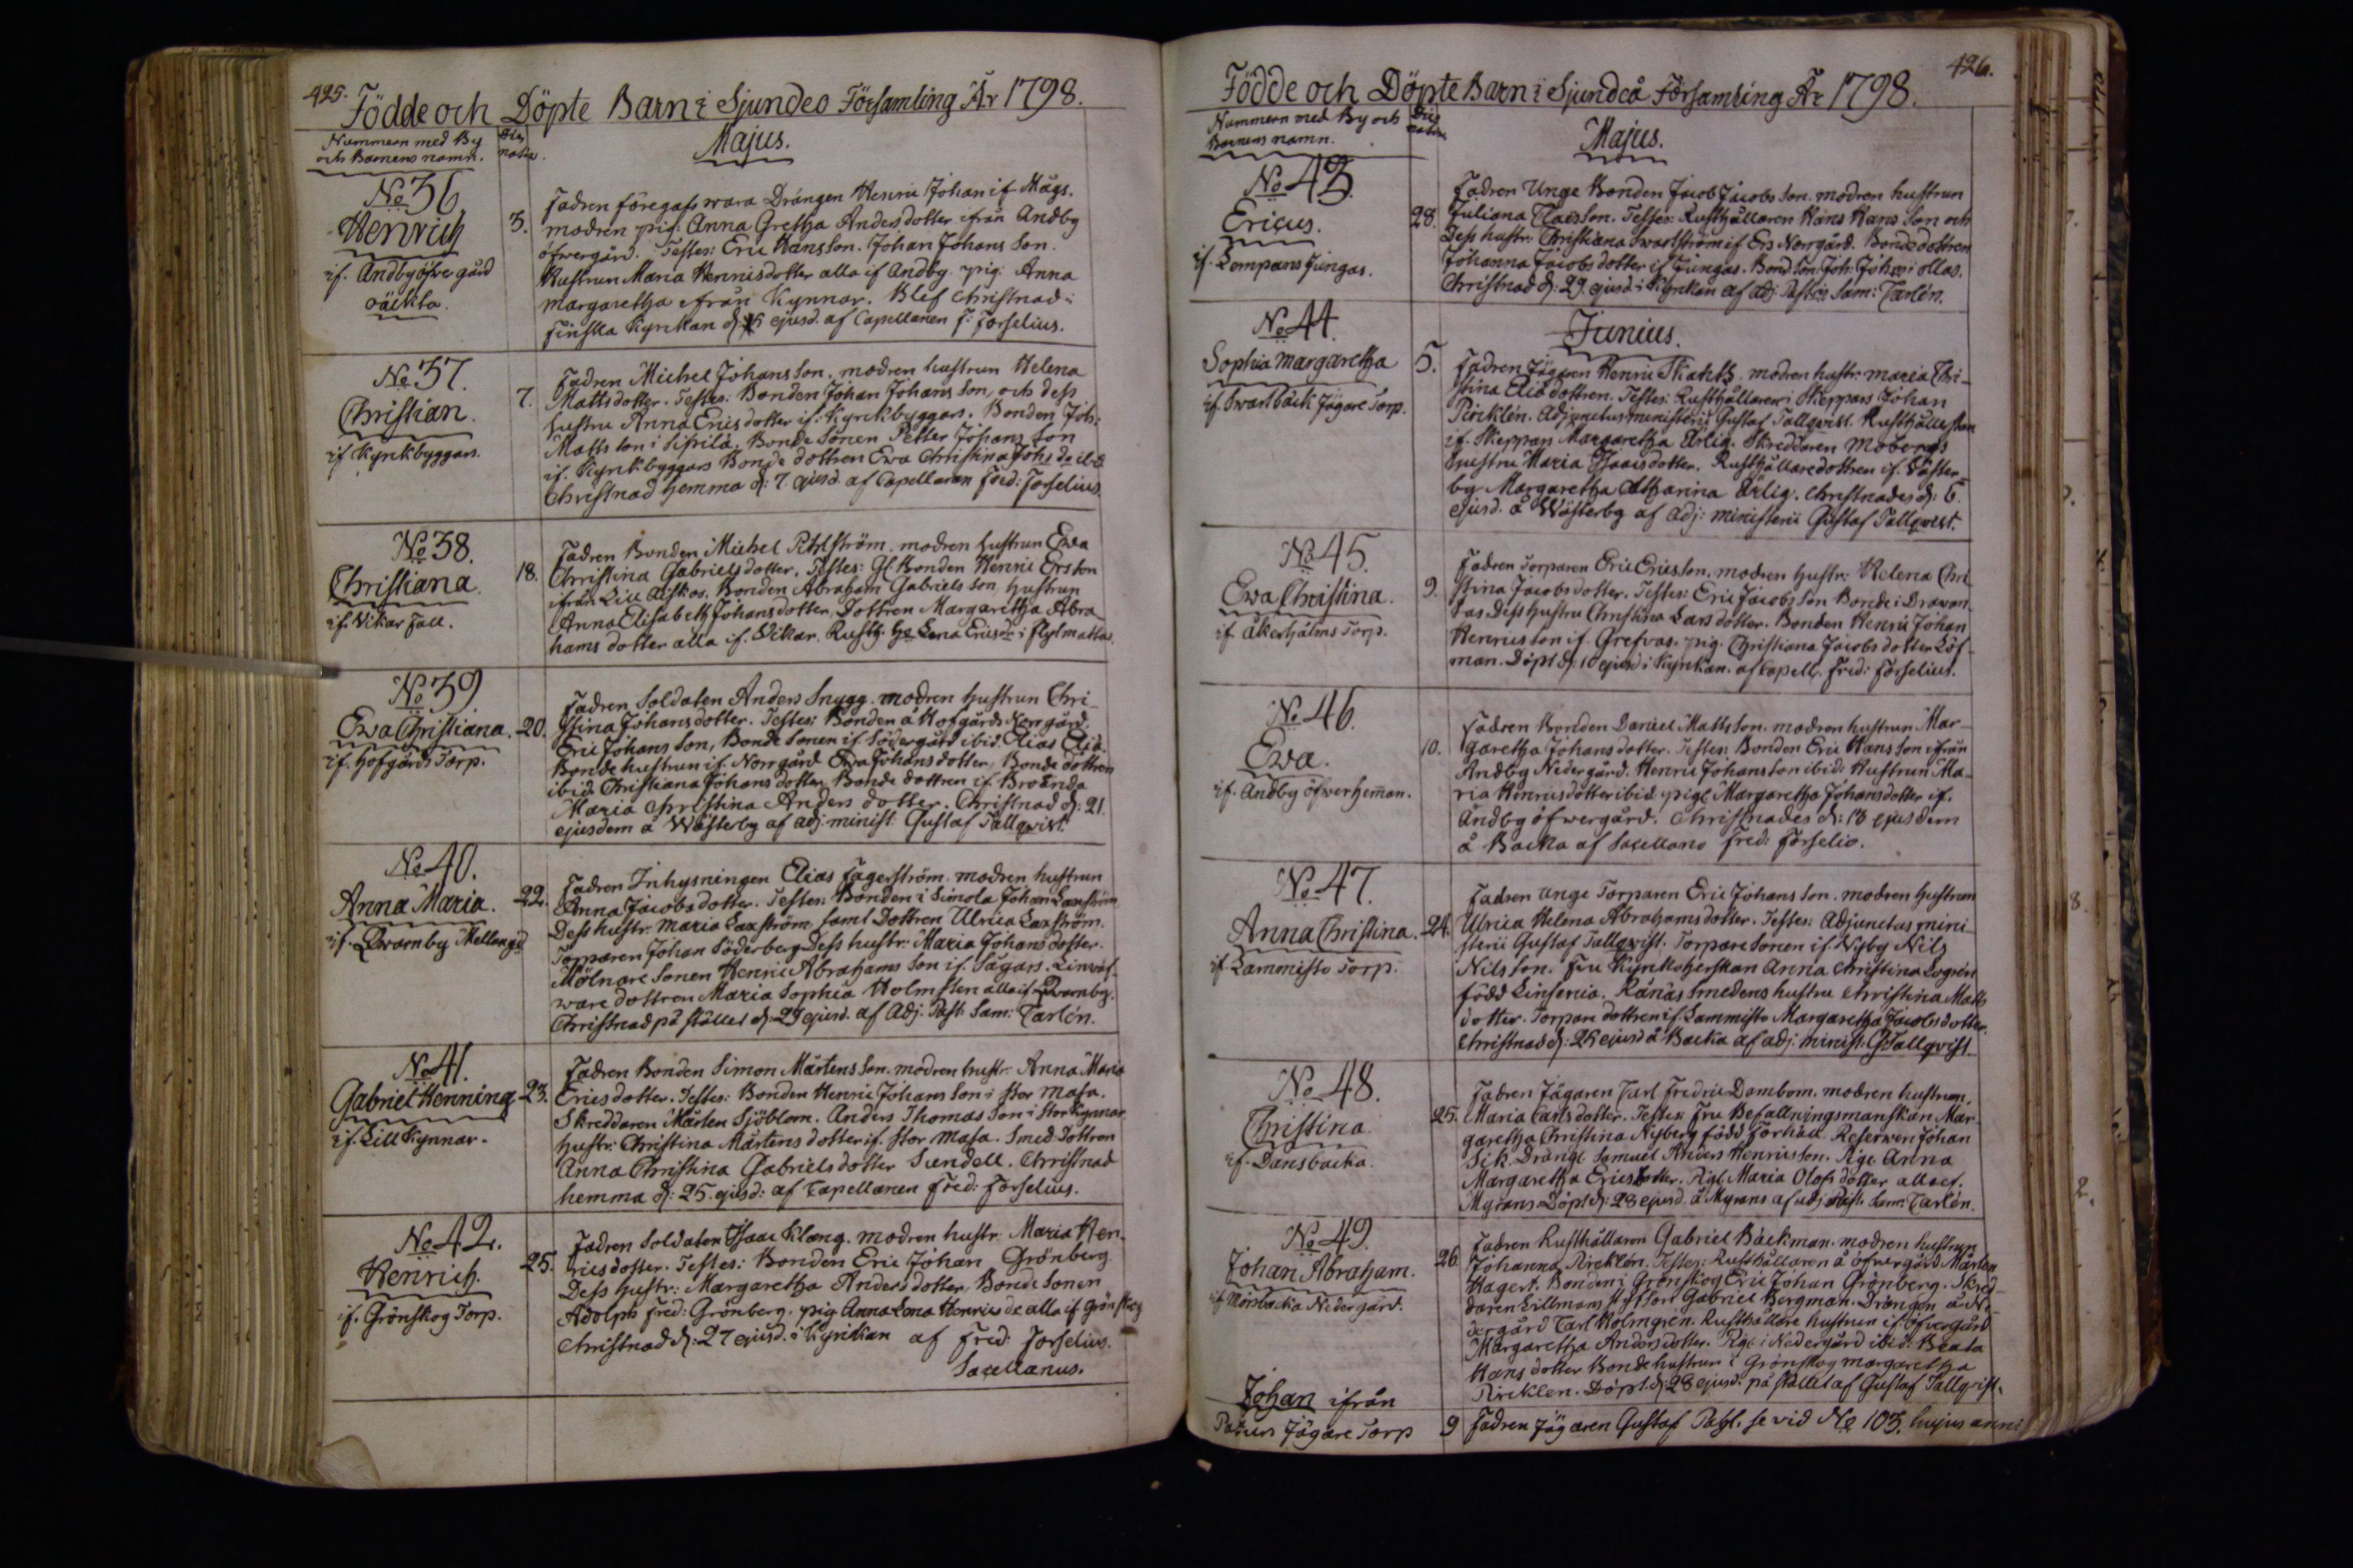 425.
Födde och Döpte Barn i Sjundeo Församling År 1798.
Nummern med By
och Barnens namn.
Dies
natiu.
Majus.
No 36
Henrich
if. Andby öfvergård
oäckta.
3.
Fadren föregafs wara Drängen Henric Johan if Mägs.
modren pig: Anna Gretha Anders dotter ifrån Andby
öfwergård. Testes: Eric Hansson. Johan Johans Son.
Hustrun Maria Henricsdotter alla if Andby. pig: Anna
Margaretha ifrån Kynnar. Blef Christnad i
Finska Kyrkan d: 5 ejusd. af Capellanen F: Forselius.
No 37.
Christian.
if Kyrkbyggars.
7.
Fadren Michel Johans Son. modren hustrun Helena
Mattsdotter. Testes: Bonden Johan Johans Son, och dess
hustru Anna Erics dotter if. Kyrckbyggars. Bonden Joh:
Matts Son i Bonde Sonen Petter Johans Son
if. Kyrkbyggars Bonde dottren Ewa Christina Johs dr ibid
Christnad hemma d: 7. ejusd. af Capellanen Fred: Forselius.
No 38.
Christiana
if. Vikar Fall.
18.
Fadren Bonden Michel Pihlström. modren hustrun Ewa
Christina Gabrielsdotter. Testes: Gl. Bonden Henric Ersson
ifrån Lill Bonden Abraham Gabriels Son hustrun
Anna Elisabeth Johansdotter. Dottren Margaretha Abra
hams dotter alla if. Vikar. Rusth. Lena Ericsdr i Flytmatts.
No 39.
Ewa Christiana.
if. Hofgårds Torp.
20.
Fadren Soldaten Anders Snygg. modren hustrun Chri-
stina Johansdotter. Testes: Bonden å Hofgårds Norrgård
Eric Johans Son, Bonde Sonen if. Södergård ibid. Elias
Bonde hustrun if. Norrgård Ewa Johansdotter, Bonde dottren
ibid. Christiana Johans dotter, Bonde dottren if.
Maria Christina Anders dotter. Christnad d: 21
ejusdem å Wästerby af adj: minist: Gustaf Tallqvist.
No 40.
Anna Maria.
if. Qwarnby Mellangd
22.
Fadren Inhysningen Elias Fagerström. modren hustrun
Anna Jacobsdotter. Testes: Bonden i Simola Johan Laxström
Dess hustr: Maria Laxström samt Dottren Ulrica Laxström.
Torparen Johan Söderberg Dess hustr: Maria Johans dotter.
Mölnare Sonen Henric Abrahams Son if. Sågars. Linwäf-
ware dottren Maria Sophia Holmsten alla if Qwarnby.
Christnad på stället d: 23 ejusd. af Adj: Past: Sam: Carlén.
No 41.
Gabriel Henning
if. Lill Kynnar.
23.
Fadren Bonden Simon Mårtens Son. modren hustr. Anna Maria
Ericsdotter. Testes: Bonden Henric Johans Son i Stor Masa.
Skreddaren Mårten Sjöblom. Anders Thomas Son i Stor Kynnar
hustr: Christina Mårtens dotter if. Stor Masa. Smed Dottren
Anna Christina Gabrielsdotter Sundell. Christnad
hemma d: 25. ejusd: af Capellanen Fred: Forselius.
No 42.
Henrich.
if. Grönskog Torp.
25.
Fadren Soldaten Isaac Klang. modren hustr: Maria Hen-
ricsdotter. Testes: Bonden Eric Johan Grönberg
Dess hustr: Margaretha Anders dotter, Bonde Sonen
Adolph Fred: Grönberg. pig Anna Lena Henrics dr alla if Grönskog
Christnad d: 27 ejusd. i Kyrkan af Fred: Forselius.
Sacellanus.
426.
Födde och Döpte Barn i Sjundeå Församling År 1798.
Nummern med By och
Barnens namn.
Dies
natiu.
Majus.
No 43.
Ericus.
if. Lompans Jungas.
28.
Fadren Unge Bonden Jacob Jacobs Son. modren hustrun
Juliana Claesson. Testes: Rusthållaren Hans Hans Son och
Dess hustr: Christiana Swartström if Ers Norrgård. Bonde dottren
Johanna Jacobs dotter if Jungas. Bond.Son: Joh: Johan i Ollas.
Christnad d: 29 ejusd i Kyrkan af Adj: Pastor: Sam: Carlén.
Junius.
No 44.
Sophia Margaretha
if. Swartbäck Jägare Torp.
5.
Fadren Jägaren Henric modren hustr: Maria Chri-
stina dottren. Testes: Rusthållaren i Skeppars Johan
Pircklén. Adjunctus ministerii Gustaf Tallqvist. Rusthållerskan
if. Skeppars Margaretha Ärlig. Skreddaren Mobergs
hustru Maria Isaacsdotter. Rusthållaredottren if. Wäster
by Margaretha Catharina Ärlig. Christnades d: 6.
ejusd. å Wästerby af adj: ministerii Gustaf Tallqvist.
No 45.
Ewa Christina.
if. Åkerhjälms Torp.
9.
Fadren Torparen Eric Ericsson. modren hustr: Helena Chri-
stina Jacobsdotter. Testes: Eric Jacobs Son Bonde i
Dess hustru Christina Lars dotter. Bonden Henric Johan
Henricsson if. Grefvas. pig. Christiana Jacobs dotter Löf-
man. Döpt d: 10 ejusd i Kyrkan. af Capell. Fred: Forselius.
No 46.
Ewa.
if. Andby öfwerhem̄an.
10.
Fadren Bonden Daniel Matts Son. modren hustrun Mar-
garetha Johans dotter. Testes: Bonden Eric Hans Son ifrån
Andby Nedergård. Henric Johansson ibid: Hustrun Ma-
ria Henricsdotter ibid pig: Margaretha Johansdotter if.
Andby öfwergård. Christnades d: 13 ejusdem
å Backa af Sacellano Fred: Forselio.
No 47.
Anna Christina.
if Lammisto Torp.
24.
Fadren unge Torparen Eric Johans Son. modren hustrun
Ulrica Helena Abrahamsdotter. Testes: Adjunctus mini-
sterii Gustaf Tallqvist. Torpare Sonen if. Nyby Nils
Nilsson. Fru Kyrkoherskan Anna Christina Logrén
född Linsenia. Rånäs Smedens hustru Christina Matts
dotter. Torpare dottren if Lammisto Margaretha Jacobsdotter.
Christnad d: 25 ejusd å Backa af adj: minist: G:Tallqvist.
No 48.
Christina
if. Dansbacka.
25.
Fadren Jägaren Carl Fredric Dambom. modren hustrun
Maria Carlsdotter. Testes: Fru Befallningsmanskan Mar-
garetha Christina Nyberg född Forhäll. Reserwen Johan
Sik. Dräng: Samuel Anders Henricsson. Pige Anna
Margaretha Ericsdotter. Pig: Maria Olofs dotter alla if.
Myrans Döpt d: 28 ejusd å Myrans af adj: Past: Sam: Carlén.
No 49.
Johan Abraham.
if Mörsbacka Nedergård.
26.
Fadren Rusthållaren Gabriel Bäckman. modren hustrun
Johanna Pircklén. Testes: Rusthållaren å öfvergård Mårten
Hagert. Bonden i Grönskog Eric Johan Grönberg. Skred-
daren Lillmans Gabriel Bergman. Drängen å Ne-
dergård Carl Holmgrén. Rusthållare hustrun if öfvergård
Margaretha Andersdotter. Pig: i Nedergård ibid: Beata
Hans dotter Bonde hustrun i Grönskog Margaretha
Pircklen. Döpt d: 28 ejusd. på stället af Gustaf Tallqvist.
Johan ifrån
Jägare Torp
9
Fadren Jägaren Gustaf se vid No 103. hujus anni